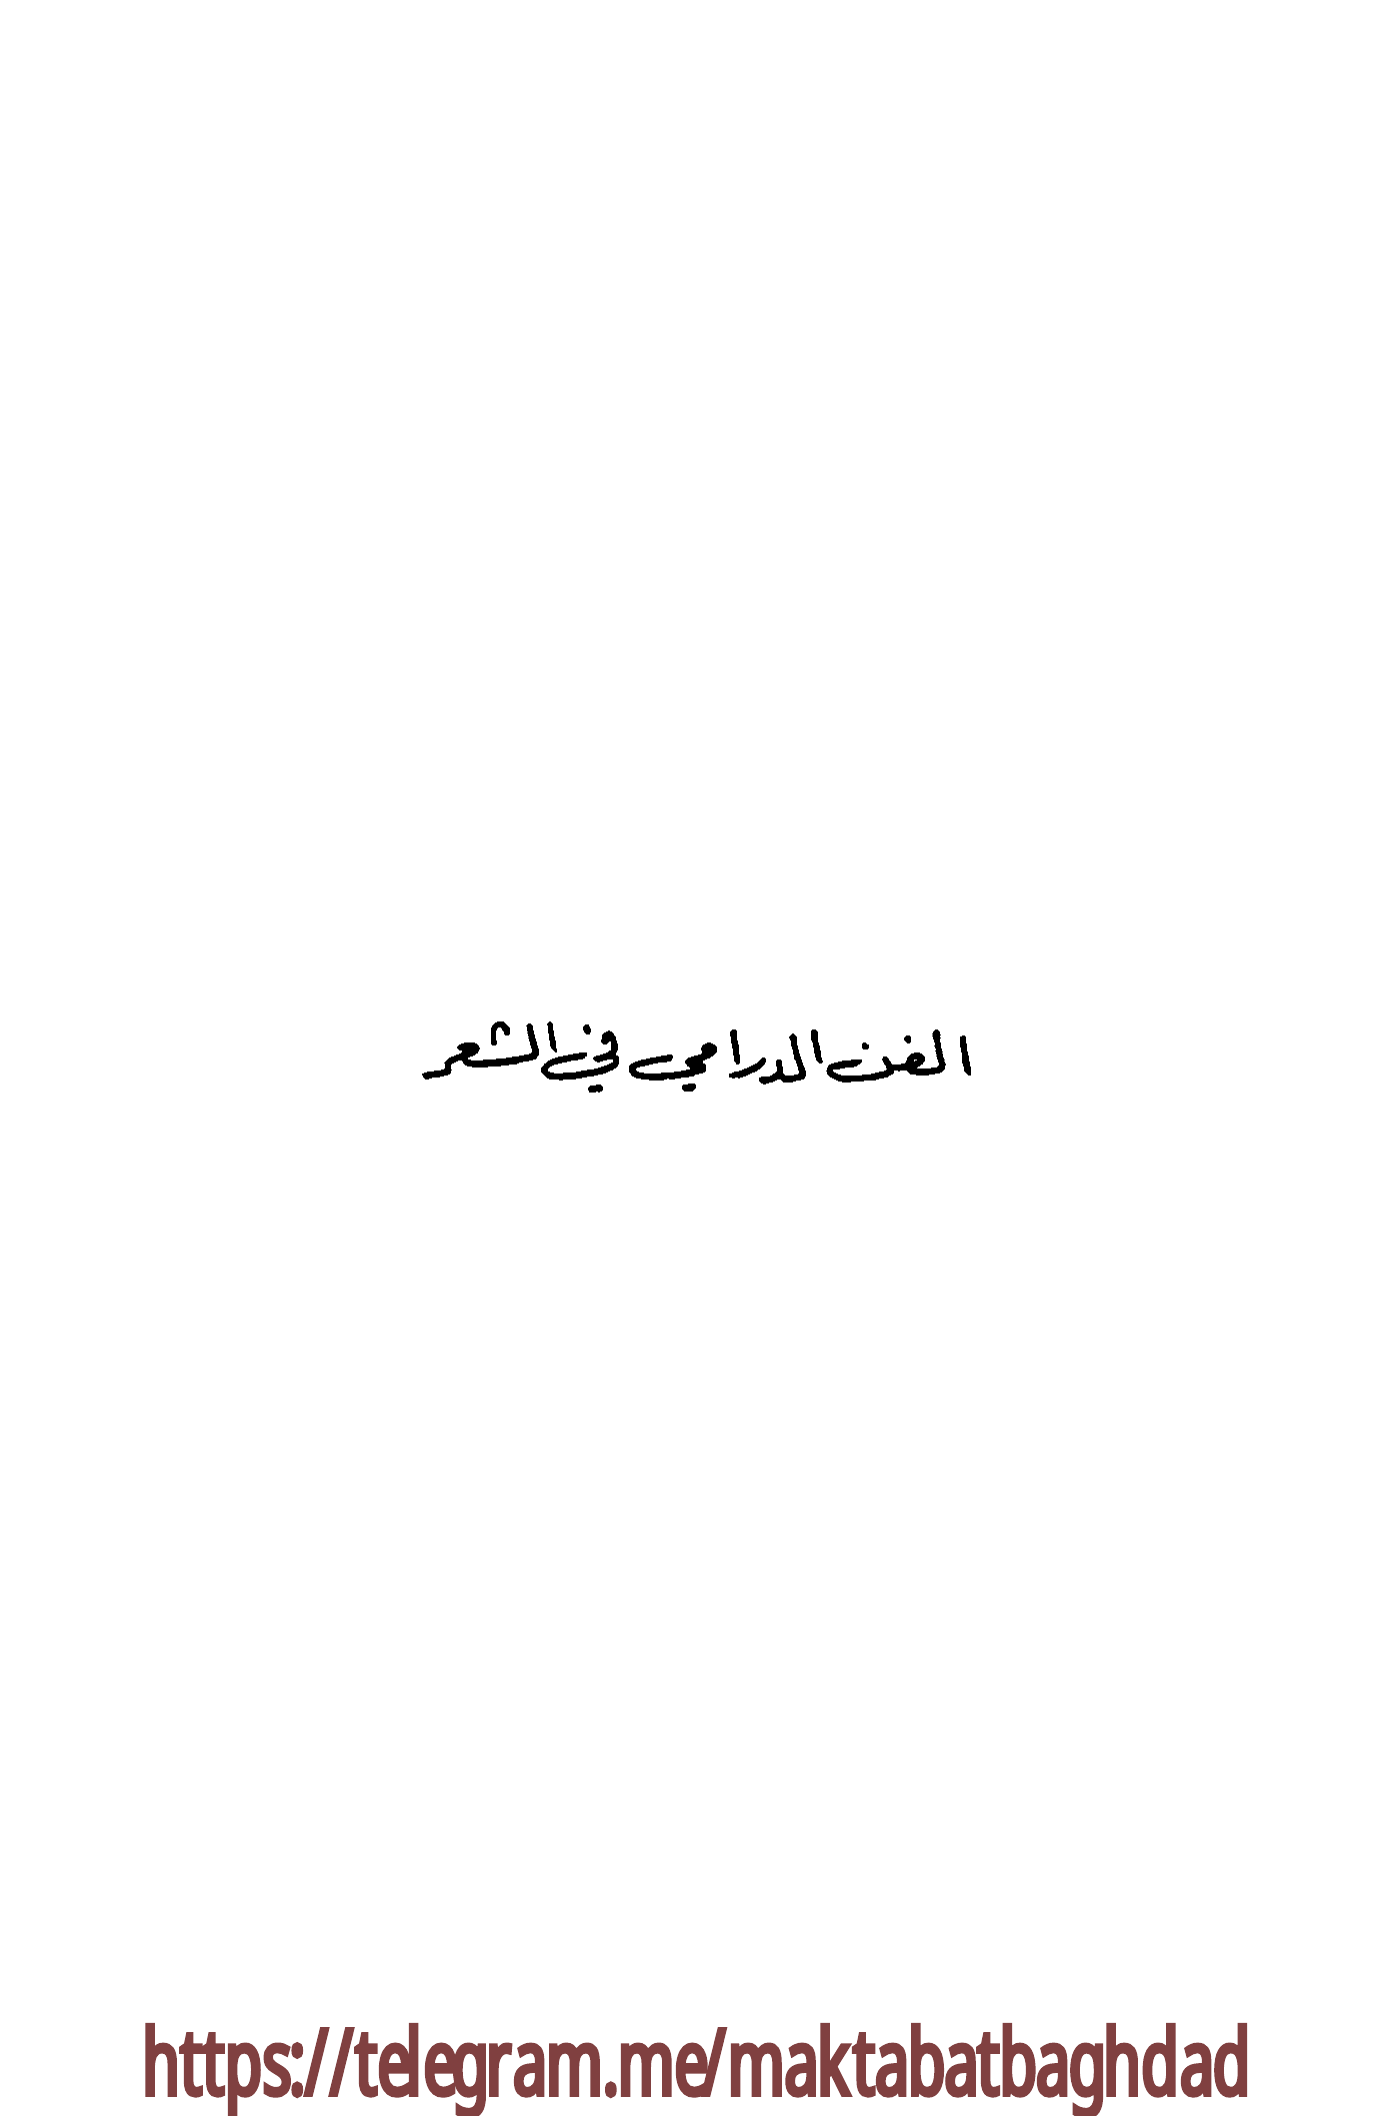 الفن الدرامي في الشعر
https://telegram.me/maktabatbaghdad